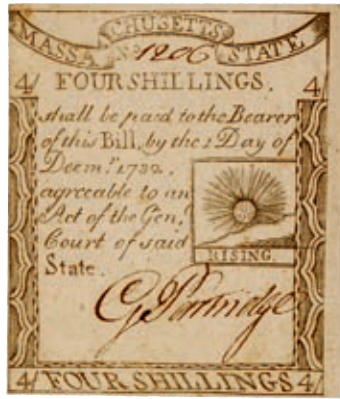 MASSACHUSETTS STATE
No. 1206
4/ FOUR SHILLINGS. 4/
shall be paid to the Bearer
of this Bill, by the 1 Day of
Decm.r 1782.
agreeable to an
Act of the Gen.l
Court of said
State.
RISING.
4/ FOUR SHILLINGS 4/